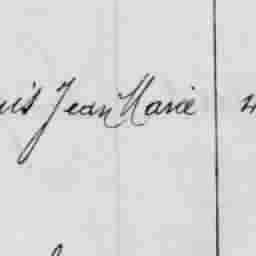 uis Jean Marie 4